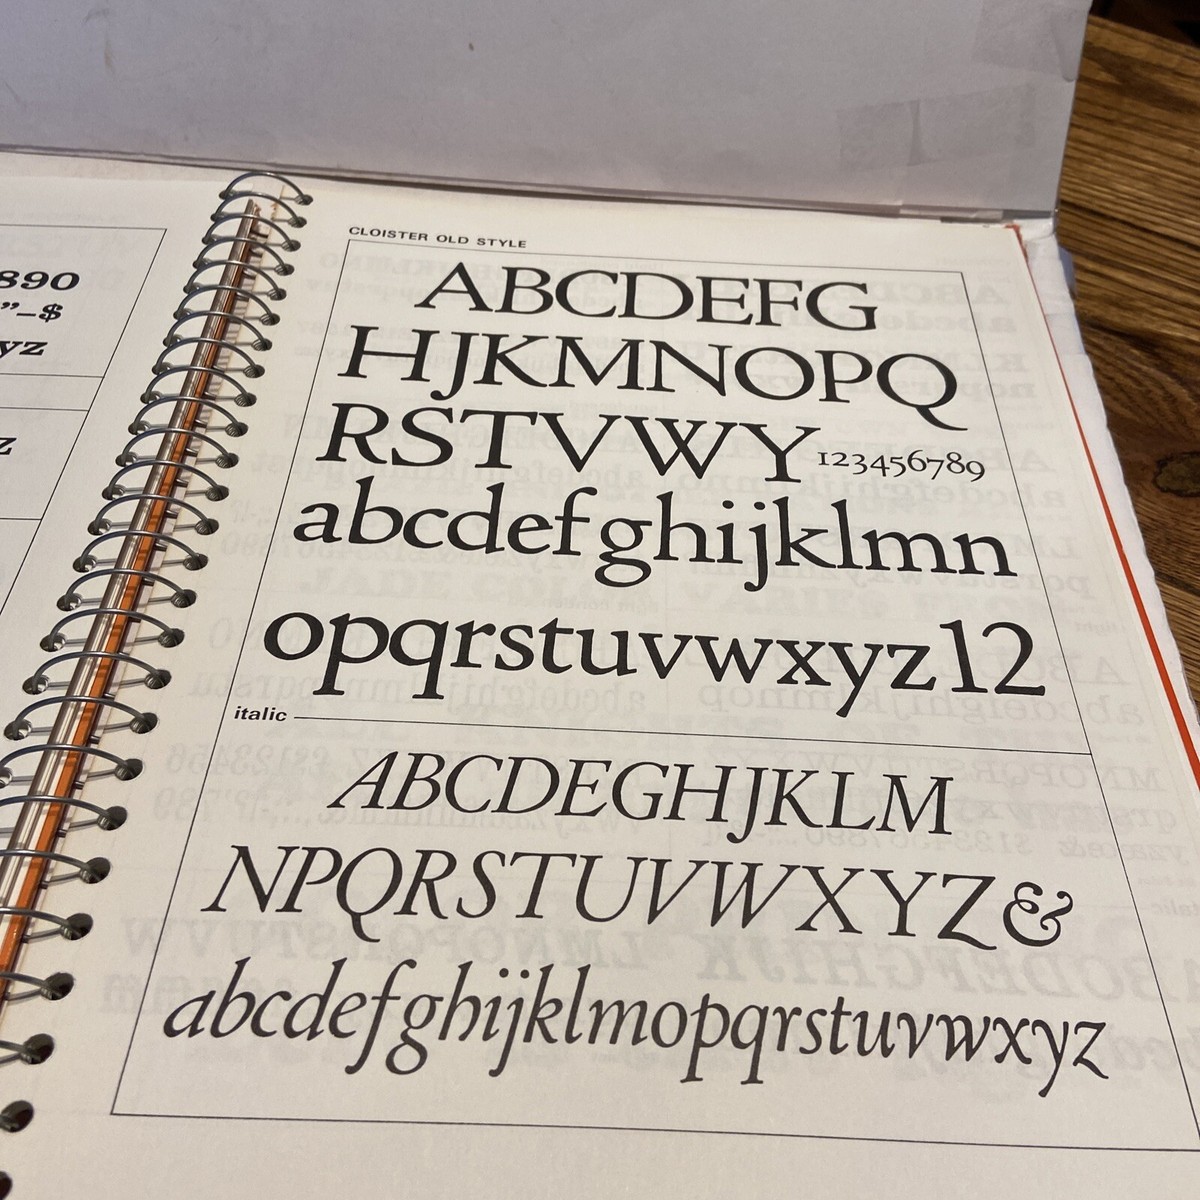 890
”–$
yz
z
CLOISTER OLD STYLE
ABCDEFG
HJKMNOPQ
RSTVWY 123456789
abcdefghijklmn
opqrstuvwxyz12
italic
ABCDEGHJKLM
NPQRSTUVWXYZ&
abcdefghijklmopqrstuvwxyz